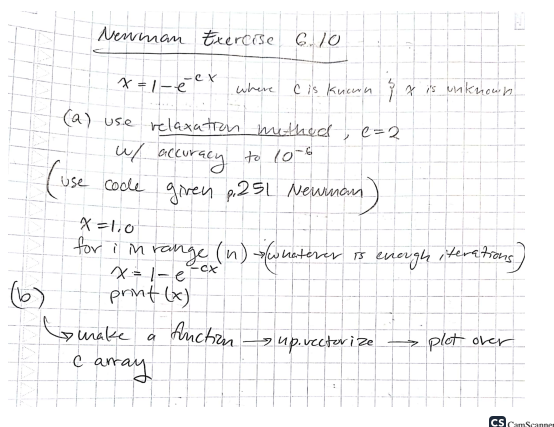 Newman Exercise 6.10
x = 1 - e^{-cx} where c is known & x is unknown
(a) use relaxation method, c=2
w/ accuracy to 10^{-6}
(use code given p.251 Newman)
x = 1.0
for i in range (n) → (whatever is enough iterations)
x = 1 - e^{-cx}
print (x)
(b)
↳ make a function → np.vectorize → plot over
c array
CS CamScanner